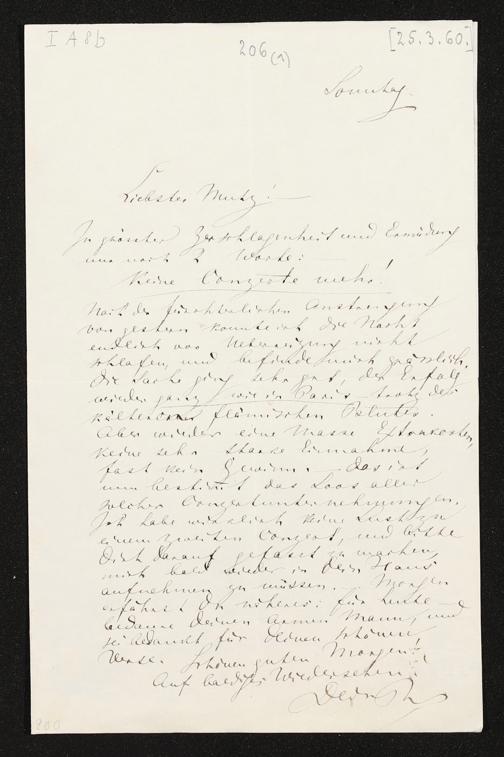 I A 8b
206 (1)
[25. 3. 60.]
Sonntag.
Liebster Mutz! —
In grösster Zerschlagenheit und Ermüdung
nur noch 2 Worte:
Keine Conzerte mehr!
Nach der fürchterlichen Anstrengung
von gestern konnte ich die Nacht
endlich vor Ueberreizung nicht
schlafen, und befinde mich grässlich.
Die Sache ging sehr gut, der Erfolg
wieder ganz wie in Paris trotz des
kälteren flämischen Blutes.
Aber wieder eine Masse Extrakosten,
keine sehr starke Einnahme,
fast kein Gewinn. Das ist
nun bestimmt das Loos aller
solcher Conzertunternehmungen.
Ich habe wirklich keine Lust zu
einem zweiten Conzert, und bitte
Dich darauf gefasst zu machen,
mich bald wieder in Dein Haus
aufnehmen zu müssen. Morgen
erfährst Du näheres: für heute
bedaure Deinen armen Mann, und
sei bedankt für Deinen schönen
Schönen guten Morgen!
Auf baldiges Wiedersehen!
Dein R
200